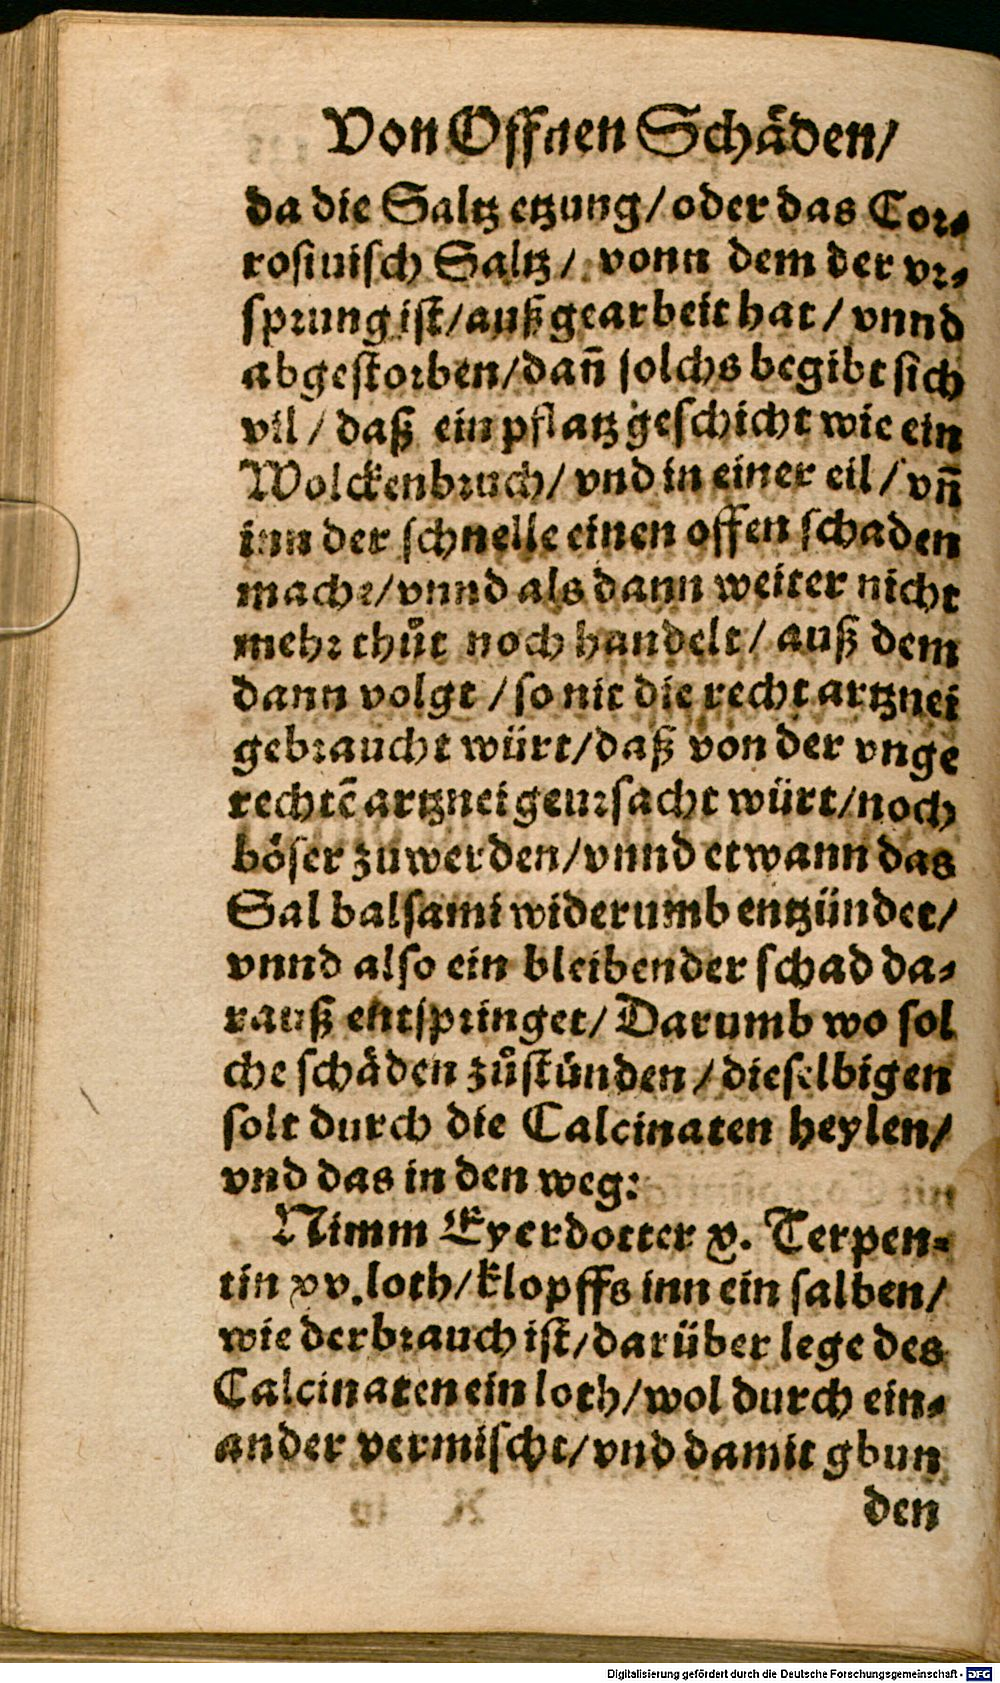 Von Offnen Schäden/
da die Saltz etzung/ oder das Cor⸗
rosiuisch Saltz/ vonn dem der vr⸗
sprung ist/ außgearbeit hat/ vnnd
abgestorben/ dañ solchs begibt sich
vil/ daß ein pflatz geschicht wie ein
Wolckenbruch/ vnd in einer eil/ vñ
inn der schnelle einen offen schaden
mache/ vnnd als dann weiter nicht
mehr thůt noch handelt/ auß dem
dann volgt/ so nit die recht artznei
gebraucht würt/ daß von der vnge
rechtẽ artznei geursacht würt/ noch
böser zuwerden/ vnnd etwann das
Sal balsami widerumb entzündet/
vnnd also ein bleibender schad da⸗
rauß entspringet/ Darumb wo sol
che schäden zůstünden/ dieselbigen
solt durch die Calcinaten heylen/
vnd das in den weg:
Nimm Eyerdotter x. Terpen⸗
tin xv. loth/ klopffs inn ein salben/
wie der brauch ist/ darüber lege des
Calcinaten ein loth/ wol durch ein⸗
ander vermischt/ vnd damit gbun
den
Digitalisierung gefördert durch die Deutsche Forschungsgemeinschaft - DFG